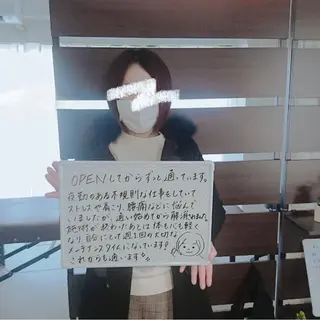 OPENしてからずっと通っています。
夜勤のある不規則な仕事をしていて
ストレスや肩こり、腰痛などに悩んで
いましたが、通い始めてから解消されました
施術が終わったあとは体も心も軽く
なり自分にとって週1回の大切な
メンテナンスタイムになっています♡
これからも通います。